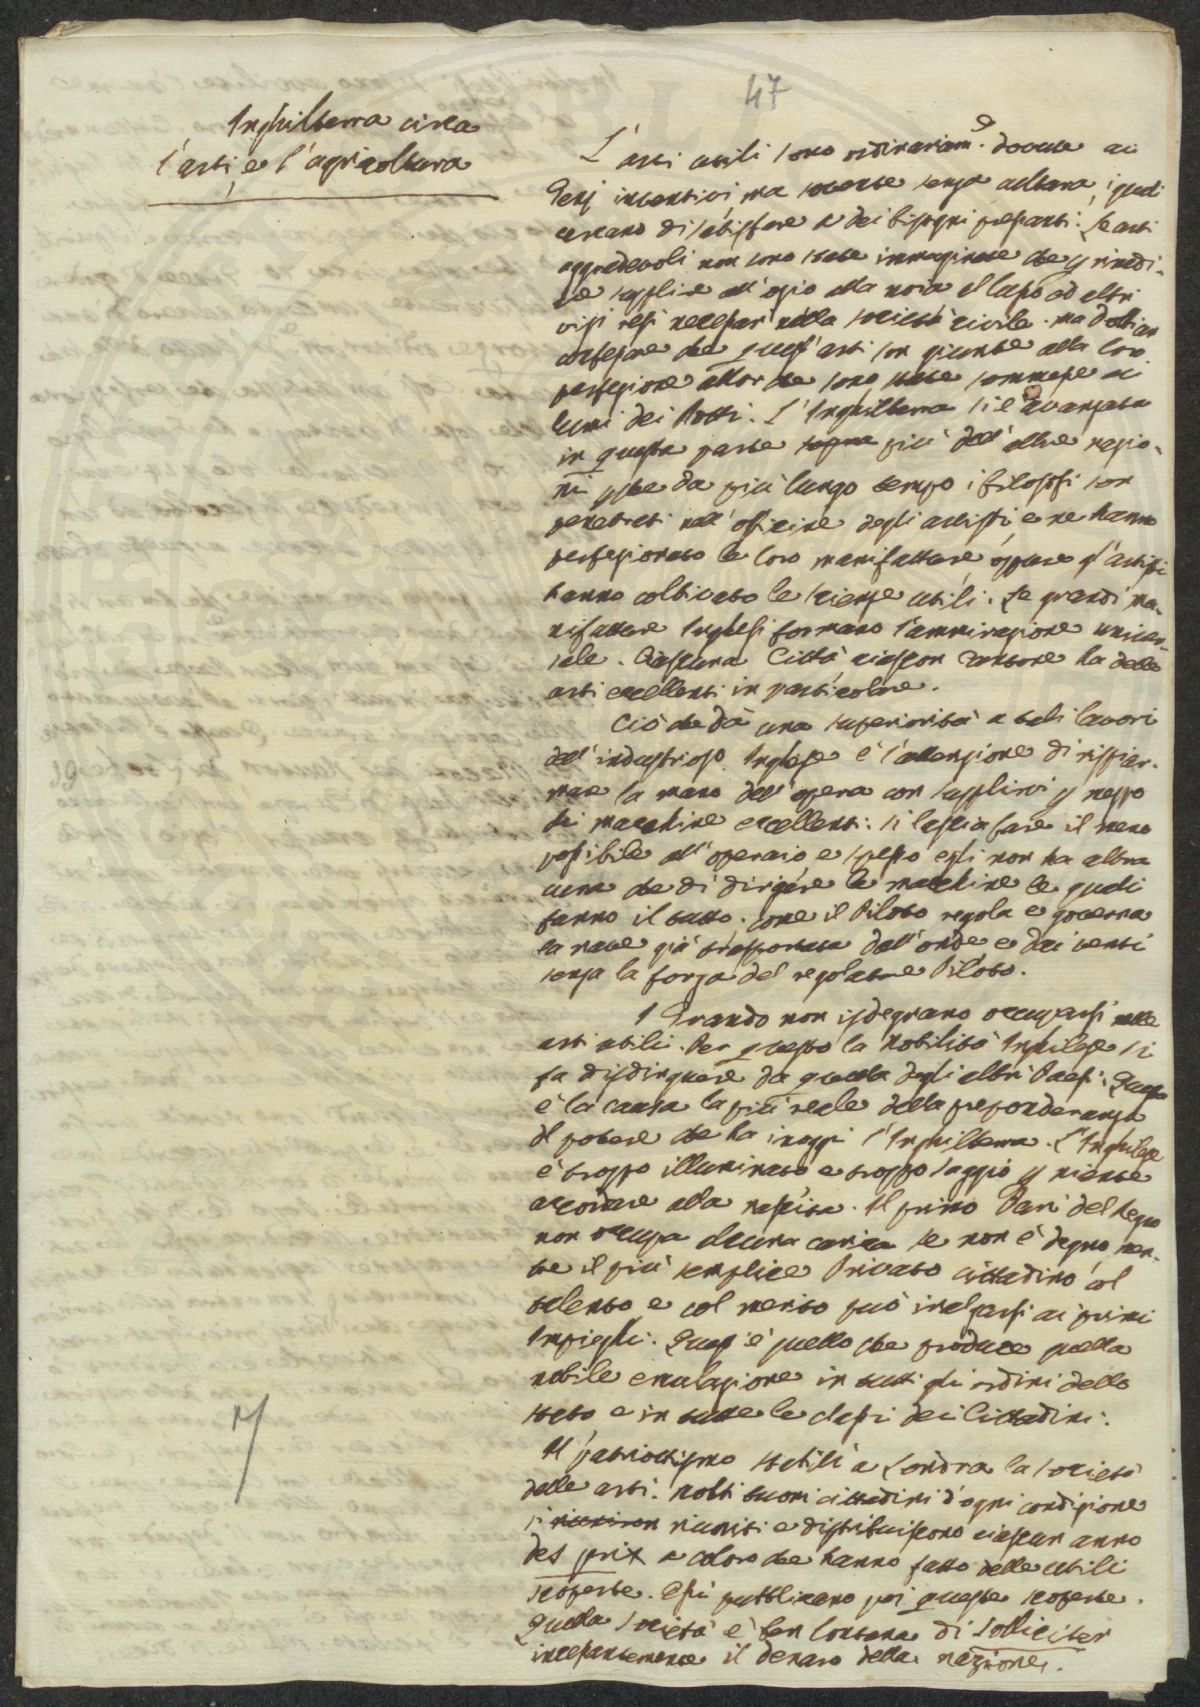 47
Inghilterra circa
l'arti, e l'agricoltura
L'arti utili sono ordinariam.e dovute ai
Genj inventivi ma sovente senza coltura, i quali
cercano di satisfare a dei bisogni pressanti: Le arti
aggradevoli non sono state immaginate che p rimedi-
are supplire all'ozio alla noia al lusso ad altri
vizi resi necessari nella società civile. ma dobbiam
confessare che quest'arti son giunte alla loro
perfezione allor che sono state sommesse ai
lumi dei Dotti. L'Inghilterra si è avanzata
in questa parte sopra più dell'altre nazio-
ni p che da più lungo tempo i filosofi son
penetrati nell'officine degli artisti, e ne hanno
perfezionato le loro manifatture, oppure gl'artisti
hanno coltivato le scienze utili. Le grandi ma-
nifatture Inglesi formano l'ammirazione univer-
sale. Ciascuna Città, ciascun Cantone ha delle
arti eccellenti in particolare.
Ciò che dà una superiorità a tali lavori
dell'industrioso Inglese è l'attenzione di rispiar-
mare la mano dell'opera con supplirvi p mezzo
di macchine eccellenti: si lascia fare il meno
possibile all'operaio e spesso egli non ha altra
cura che di dirigere le macchine le quali
fanno il tutto. come il Piloto regola e governa
la nave già trasportata dall'onde e dai venti
senza la forza del regolatore Piloto.
I Grandi non isdegnano occuparsi nelle
arti utili. Per questo la Nobiltà Inghilese si
fa distinguere da quella degli altri Paesi: Questa
è la causa la più reale della preponderanza
del potere che ha in oggi l'Inghilterra. L'Inghilese
è troppo illuminato e troppo saggio p niente
accordare alla nascita. Il primo Pari del Regno
non occupa alcuna carica se non è degno, men-
tre il più semplice Privato cittadino col
talento e col merito può inalzarsi ai primi
Impieghi. Quest'è quello che produce quella
nobile emulazione in tutti gli ordini dello
stato e in tutte le classi dei Cittadini.
Il patriottismo stabilì a Londra la società
delle arti. Molti buoni cittadini d'ogni condizione
si riuniti e distribuiscono ciascun anno
des prix a coloro che hanno fatto delle utili
scoperte. Essi pubblicano poi queste scoperte.
Quella società è ben lontana di solliciter
incessantemente il denaro della nazione.